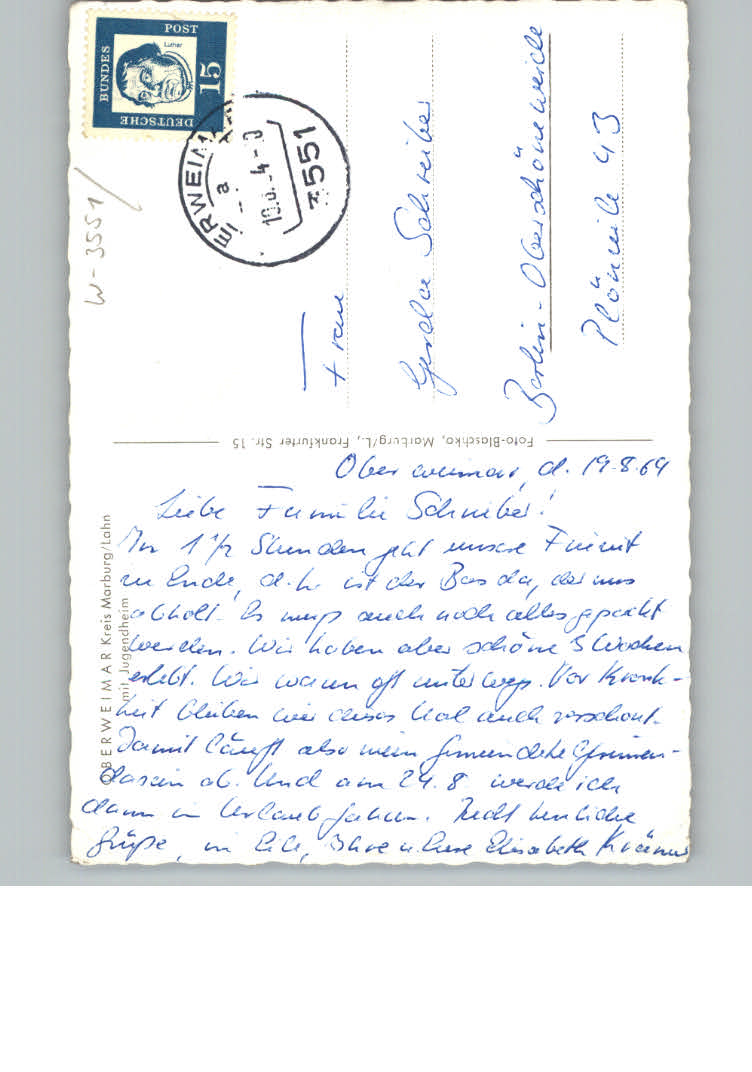 DEUTSCHE
BUNDES
POST
Luther
15
ERWEIMAR
a
3551
W-3551
Frau
Gerda Schreiber
Berlin-Oberschöneweide
Plönzeile 43
Foto-Blaschko, Marburg/L., Frankfurter Str. 15
OBERWEIMAR Kreis Marburg/Lahn
mit Jugendheim
Oberweimar, d. 19.8.64
Liebe Familie Schreiber!
In 1 1/2 Stunden geht unsere Freizeit
zu Ende, d.h. ist der Bus da, der uns
abholt. Es muß auch noch alles gepackt
werden. Wir haben aber schöne 3 Wochen
erlebt. Wir waren oft unterwegs. Vor Krank-
heit blieben wir dieses Mal auch verschont.
Damit läuft also mein Gemeindehelferinnen-
Dasein ab. Und am 24.8. werde ich
dann in Urlaub fahren. Recht herzliche
Grüße, in Eile, Ihre u. Eure Elisabeth Krämer